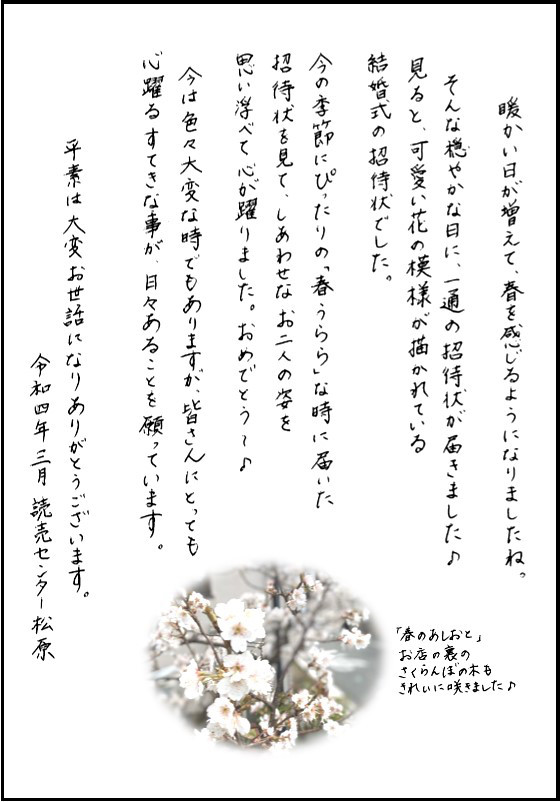 暖かい日が増えて、春を感じるようになりましたね。
そんな穏やかな日に、一通の招待状が届きました♪
見ると、可愛い花の模様が描かれている
結婚式の招待状でした。
今の季節にぴったりの「春うらら」な時に届いた
招待状を見て、しあわせなお二人の姿を
思い浮べて心が躍りました。おめでとう～♪
今は色々大変な時でもありますが、皆さんにとっても
心躍るすてきな事が、日々あることを願っています。
平素は大変お世話になりありがとうございます。
令和四年三月 読売センター松原
「春のあしおと」
お店の裏の
さくらんぼの木も
きれいに咲きました♪